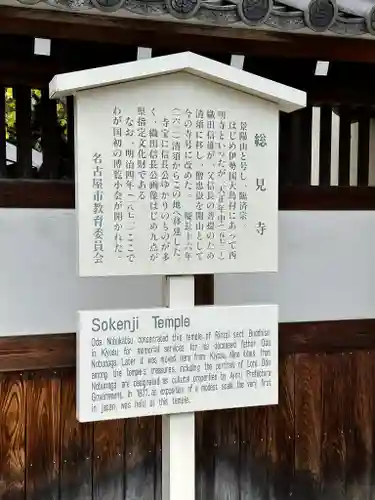 総見寺
景陽山と号し、臨済宗。
はじめ伊勢国大島村にあって西
明寺といったが、天正年中(一五七三—)
織田信雄が、父信長の菩提のため
清須に移し、僧忠嶽を開山として
今の寺号に改めた。慶長十六年
(一六一一)清須からこの地へ移建した。
寺宝に信長公ゆかりのものが多
く、織田信長公画像はじめ九点が
県指定文化財である。
なお、明治四年(一八七一)ここで
わが国初の博覧小会が開かれた。
名古屋市教育委員会
Sokenji Temple
Oda Nobukatsu consecrated this temple of Rinzai sect Buddhism
in Kiyosu for memorial services for his deceased father
Nobunaga. Later it was moved here from Kiyosu. Nine items from
among the temple's treasures, including the portrait of Lord Oda
Nobunaga are designated as cultural properties by Aichi Prefecture
Government. In 1871, an exposition of a modest scale, the very first
in Japan, was held at this temple.